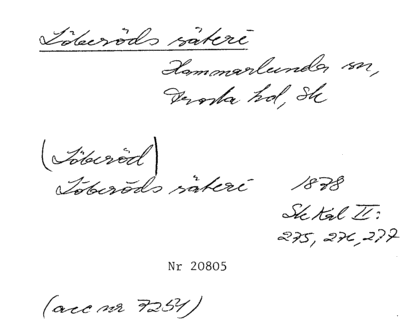 Löberöds säteri
Hammarlunda sn,
Frosta hd, Sk
(Löberöd)
Löberöds säteri 1878
Sk Kal II:
275, 276, 277
Nr 20805
(acc nr 7251)